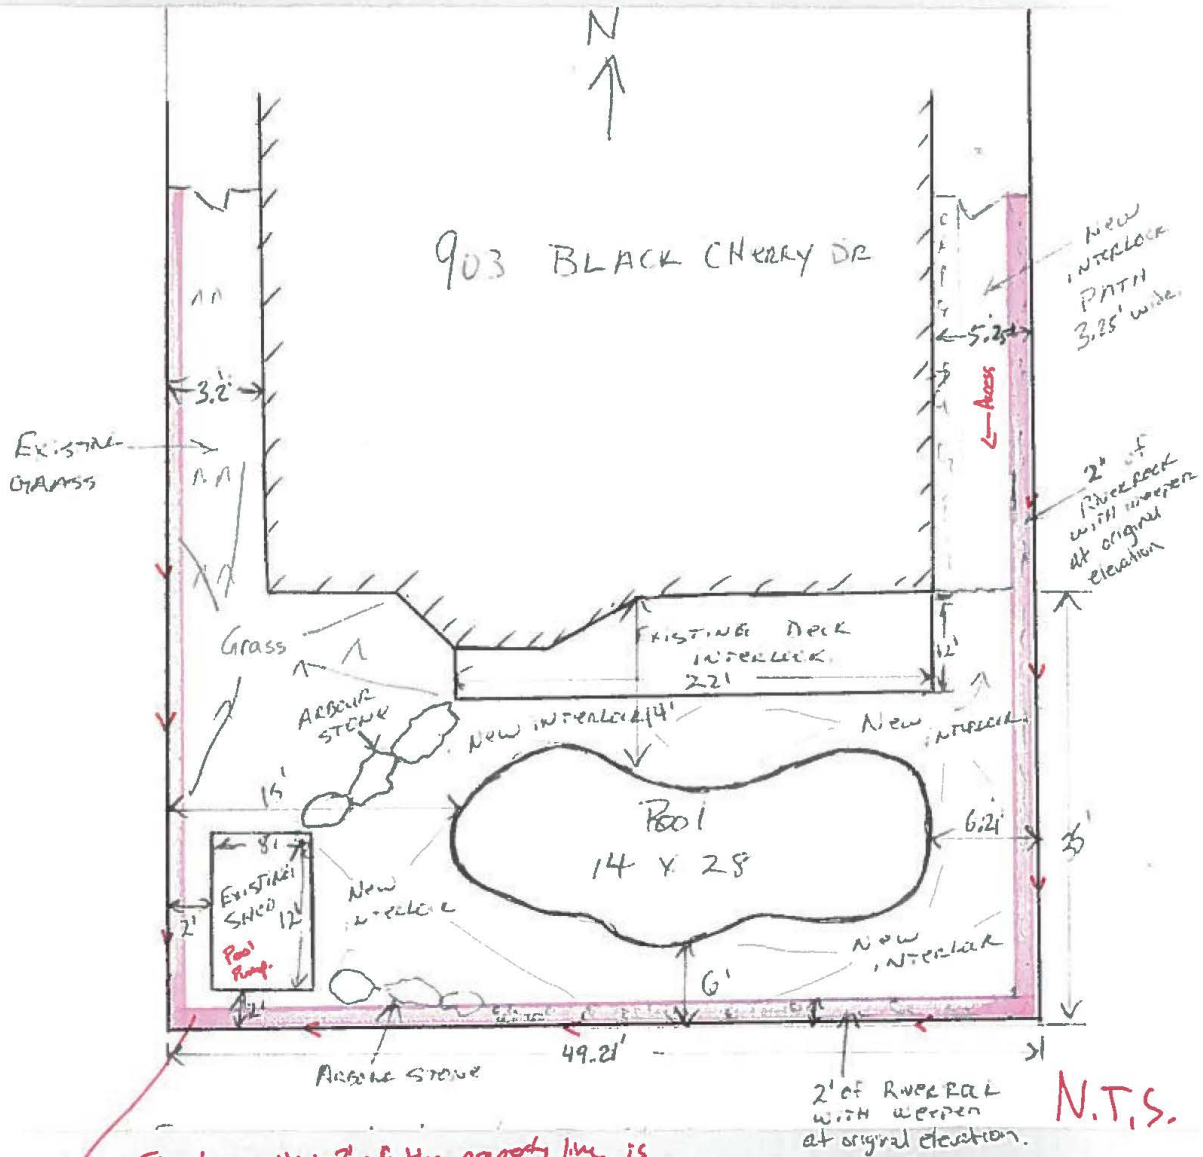 N
903 BLACK CHERRY DR
NEW
INTERLOCK
PATH
3.25' wide.
5.25'
← Access
3.2'
EXISTING
GRASS
2' of
RIVERROCK
with weeper
at original
elevation
Grass
EXISTING DECK
INTERLOCK
22'
12'
ARBOUR
STONE
NEW INTERLOCK
14'
NEW
INTERLOCK
15'
Pool
14 x 28
6.21'
8'
EXISTING
SHED
12'
Pool
Pump.
2'
NEW
INTERLOCK
NEW
INTERLOCK
6'
2'
49.21'
ARBOUR STONE
2' of RIVERROCK
with weeper
at original elevation.
N.T.S.
of the property line is